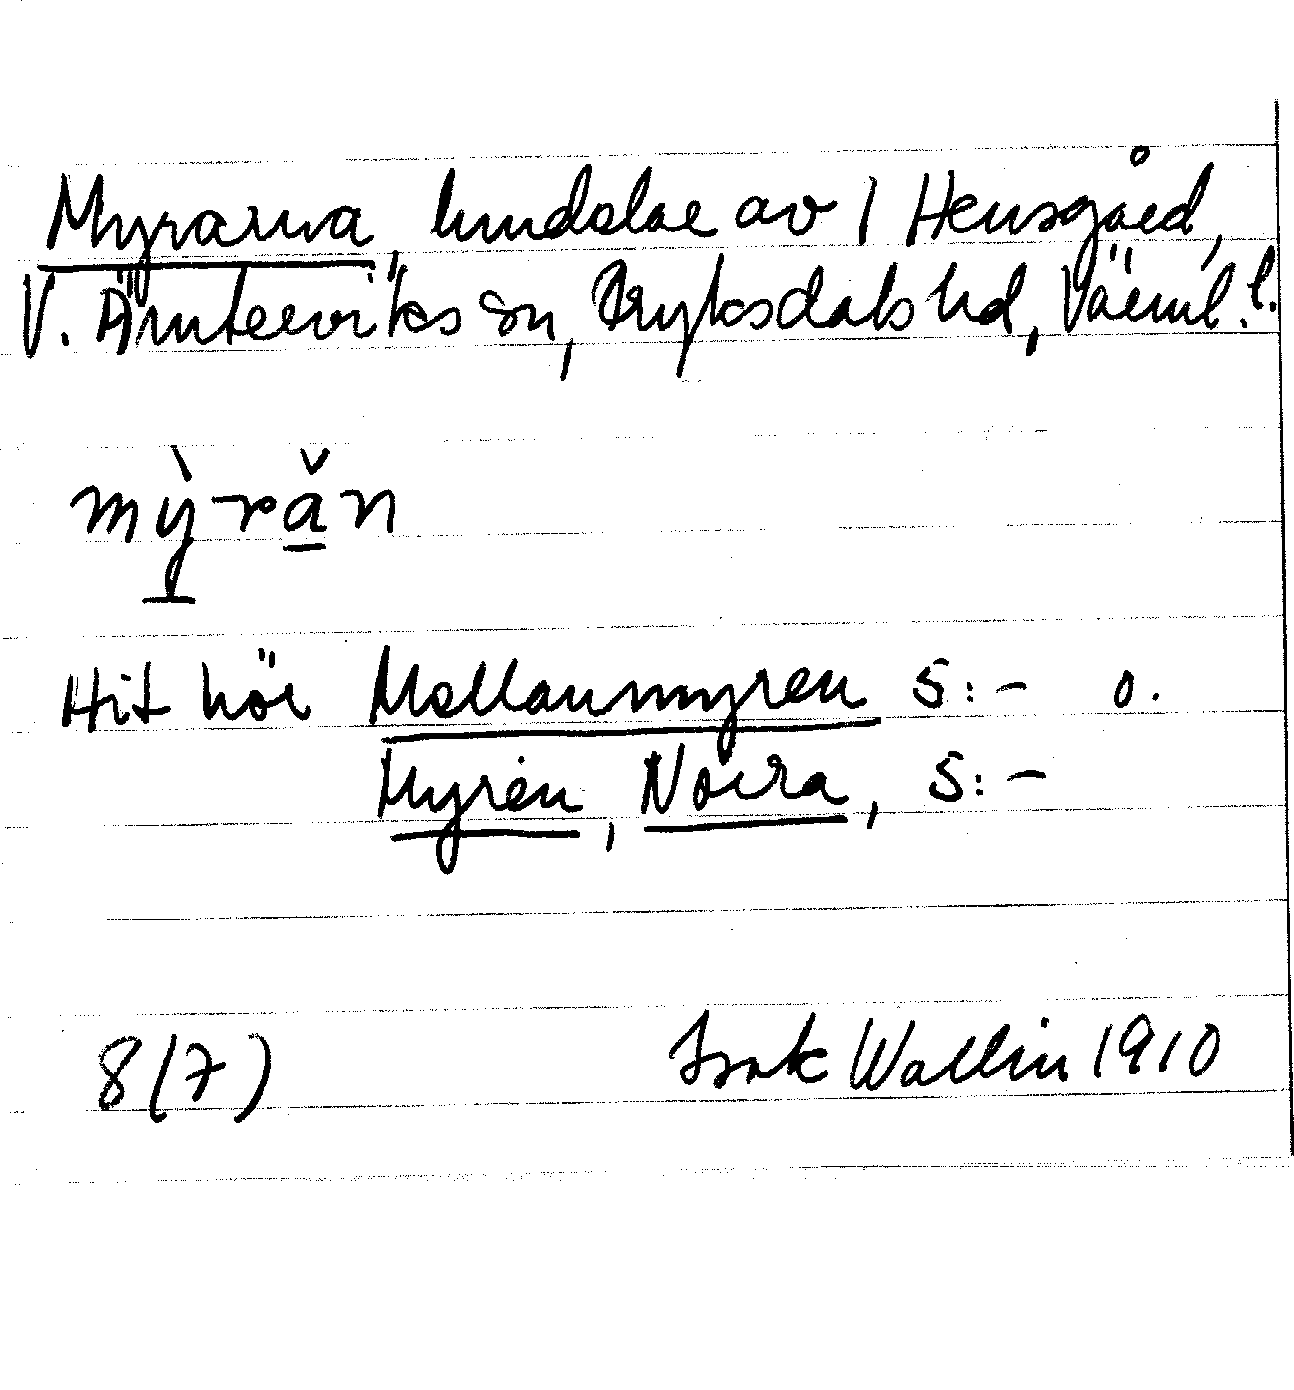 Myrarna, hmdelar av 1 Hensgård,
V. Ämterviks sn, Fryksdals hd, Värml. l.
mỳrǎn
Hit hör Mellanmyren 5:- o.
Myren, Norra, 5:-
8(7) Isak Wallin 1910